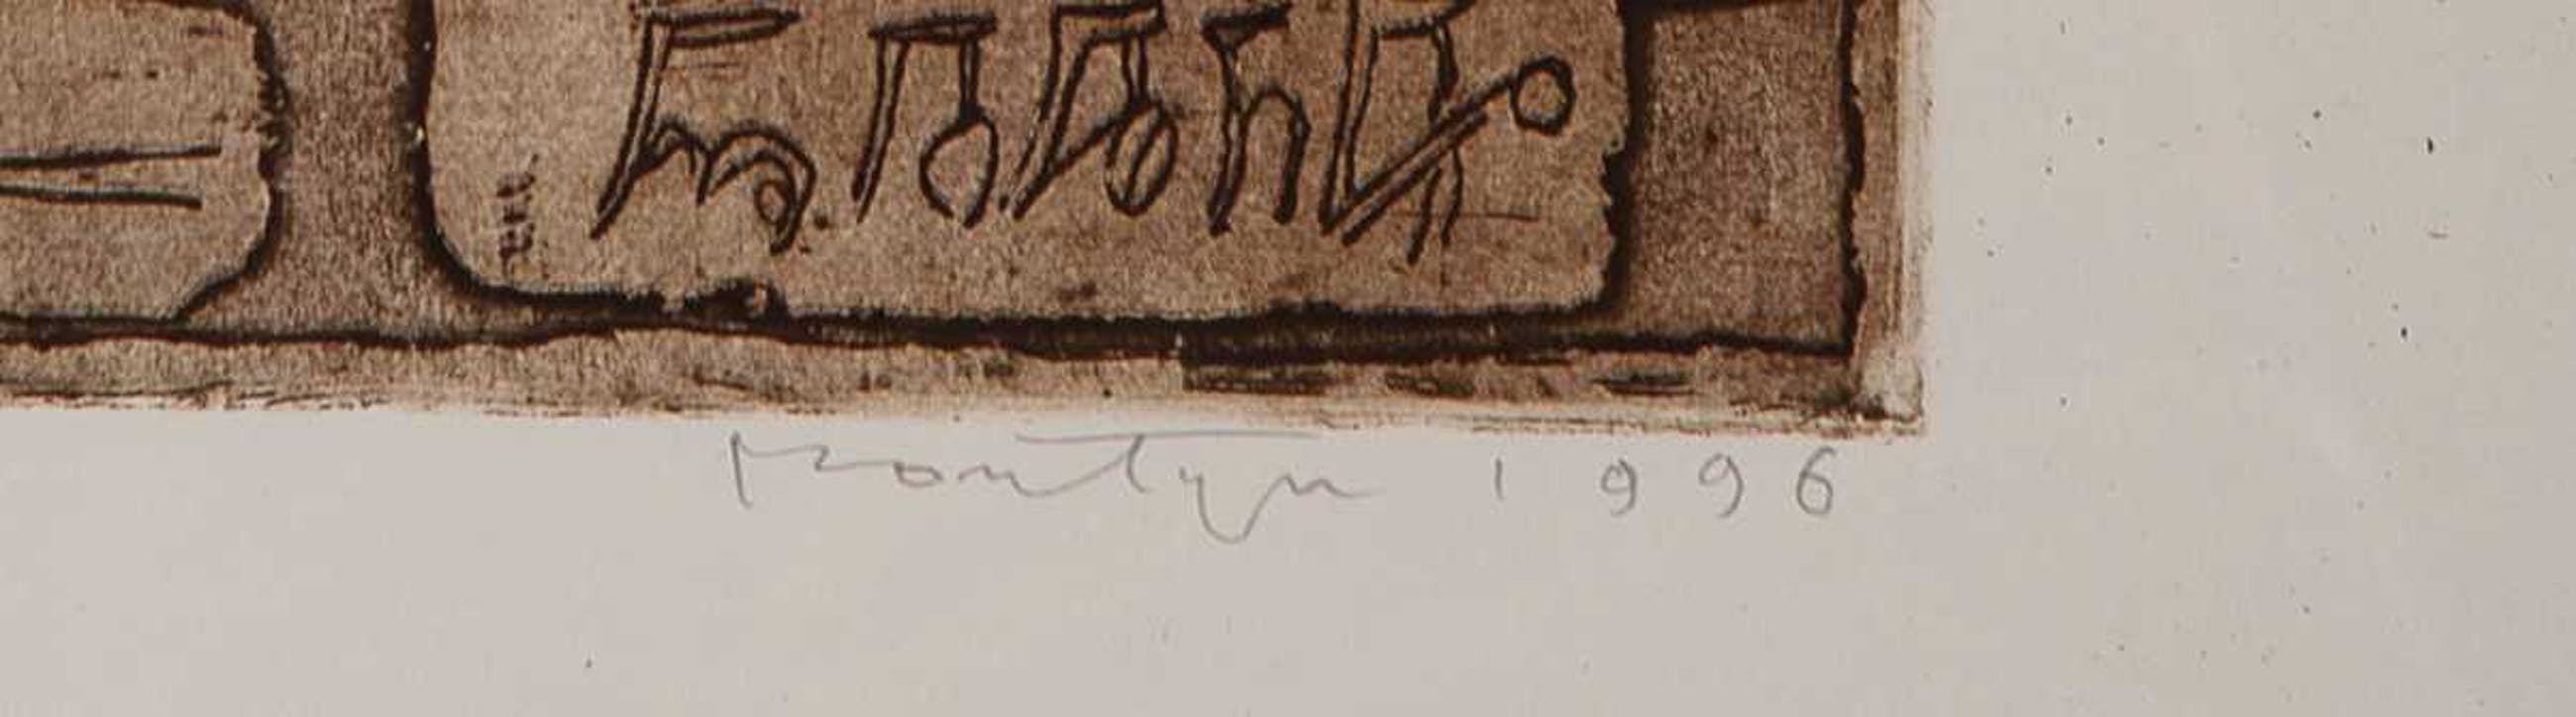 Montyn 1996